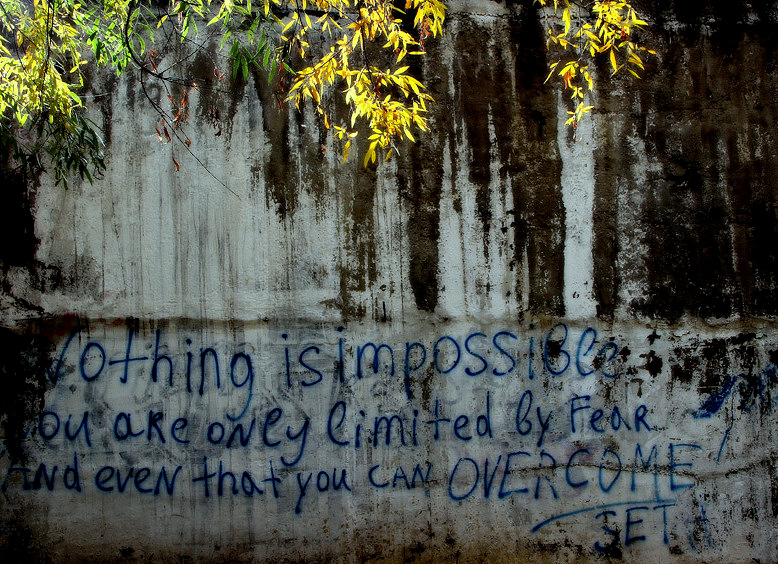 Nothing is impossiBle
you are only limited by Fear
And even that you can OVERCOME!
SETH